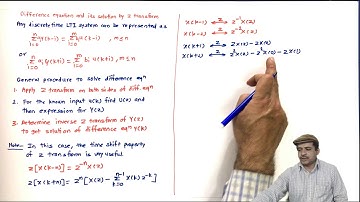 Difference equation and its solution by Z transform
Any discrete-time LTI system can be represented as
n
Σ a_i y(k-i) = Σ b_i u(k-i), m ≤ n
i=0
or
Σ a_i y(k+i) = Σ b_i u(k+i), m ≤ n
i=0
General procedure to solve difference eqⁿ
1. Apply Z transform on both sides of diff. eqⁿ
2. For the known input u(k) find U(z) and
then expression for Y(z)
3. Determine inverse Z transform of Y(z)
to get solution of difference eqⁿ y(k)
Note:- In this case, the time shift property
of Z transform is very useful
Z[x(k-n)] = z⁻ⁿ X(z)
Z[x(k+n)] = zⁿ[X(z) - Σ x(k) z⁻ᵏ]
x(k-1) ⟷ z⁻¹ X(z)
x(k-2) ⟷ z⁻² X(z)
x(k+1) ⟷ z X(z) - z x(0)
x(k+2) ⟷ z² X(z) - z² x(0) - z x(1)